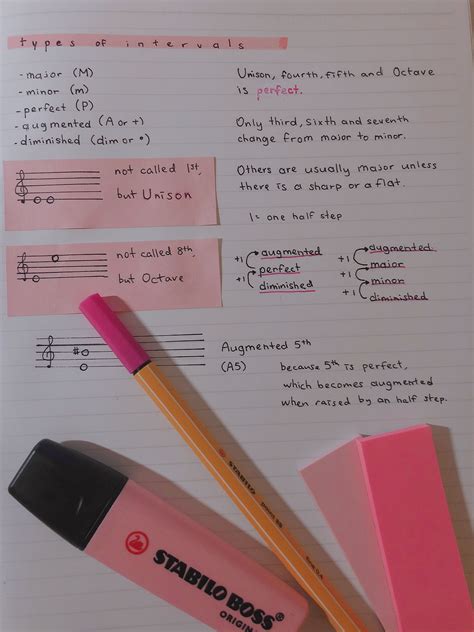 types of intervals
- major (M)
- minor (m)
- perfect (P)
- augmented (A or +)
- diminished (dim or °)
Unison, fourth, fifth, and Octave
is perfect.
Only third, sixth and seventh
change from major to minor.
Others are usually major unless
there is a sharp or a flat.
1 = one half step
not called 1st,
but Unison
not called 8th,
but Octave
+1 augmented
perfect
+1 diminished
+1 augmented
major
+1 minor
+1 diminished
Augmented 5th
(A5)
because 5th is perfect,
which becomes augmented
when raised by an half step.
STABILO
STABILO BOSS
ORIGINAL